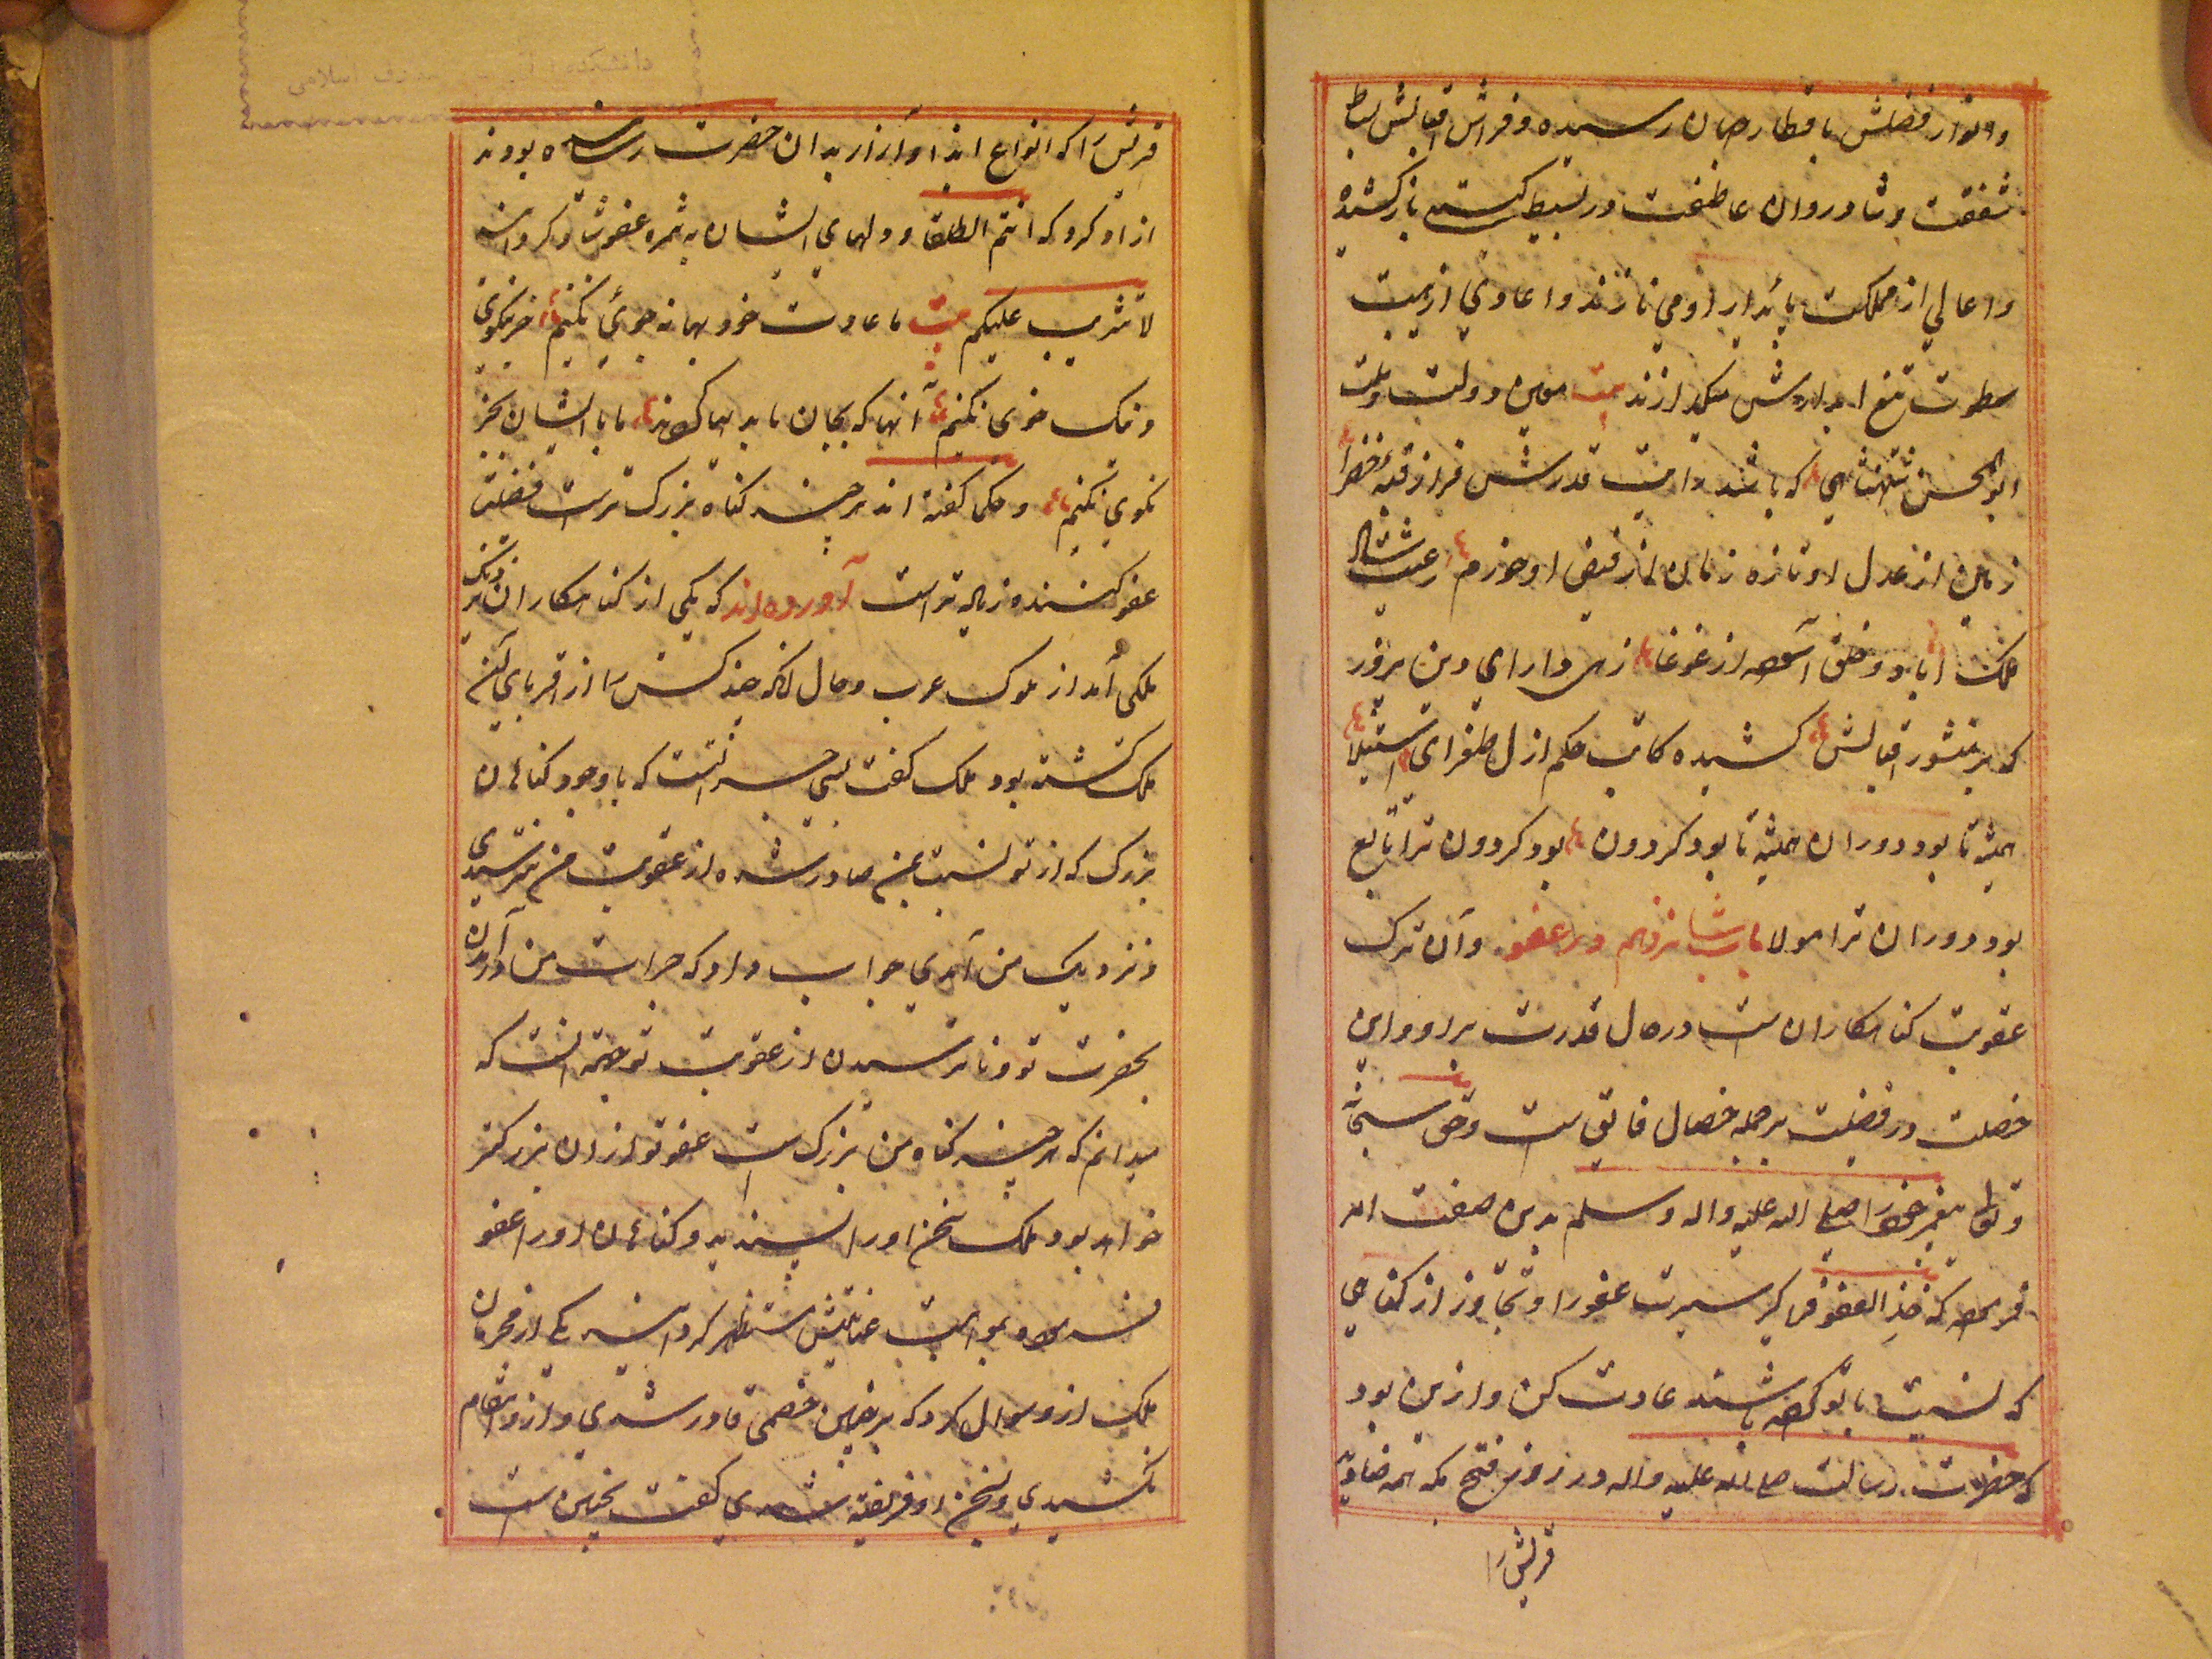 وانوار فضلش باقطار جهان رسیده و فراش اقبالش بسط
شفقت و شادروان عاطفت در بسیط گیتی باز کشیده
واعالی از مملکت پایدار او می نازند و اعادی از هیبت
سطوت تیغ ابدارش میکدازند بیت معین دولت و ملت
ابوالمحسن شهنشاهی که باشد دامیت قدرش فراز قبه خضرا
زمین از عدل او تازه زمان از فیض او خرم رعیت شاد
ملک اباد و خلق آسوده از غوغا زهی دارای دین پرور
که بر منشور اقبالش کشیده کاتب حکم ازل طغرای استیلا
همیشه تا بود دوران همیشه تا بود کردون بود کردون ترا تابع
بود دوران ترا مولا باب شانزدهم در عفو وآن ترک
عقوبت کناهکاران است در حال قدرت بر او و این
خصلت در فضیلت بر جمله خصال فایق است و حق سبحانه
و تعالی پیغمبر خود را صلی الله علیه واله وسلم بدین صفت امر
فرموده که خذ العفو فراگیر سیرت عفو را و تجاوز از کناهی
که نسبت با تو کرده باشند عادت کن و ازین بود
که حضرت رسالت صلی الله علیه واله در روز فتح مکه همه صنادید
قریش را
قریش را که انواع ایذا و آزار بدان حضرت رسانیده بودند
ازاد کرد که انتم الطلقا و دلهای ایشان به ثمره عفو شاد کردانیه
لا تثریب علیکم بیت ما عادت خود بهانه جوئی نکنیم جز نیکوئی
و نیک خوی نکنیم آنها که بجان ما بدیها کردند ما با ایشان بجز
نکوی نکنیم و حکما کفته اند هر چند کناه بزرک ترست فضیلت
عفو کننده زیاده تر است آورده اند که یکی از کناهکاران نزدیک
ملکی آمد از ملوک عرب و حال آنکه چند کس را از اقربای آن
ملک کشته بود ملک کفت بسی حیرانیست که با وجود کناهان
بزرک که از تو نسبت بمن صادر شده از عقوبت من نترسیدی
و نزدیک من آمدی جواب داد که جرات من در آمدن
بحضرت تو و ناترسیدن از عقوبت تو بجهة انست که
میدانم که هر چند کناه من بزرک است عفو تو از ان بزرکتر
خواهد بود ملک سخن او را پسندید و کناهان او را عفو
فرموده بمواهب عنایتش مستظهر کردانید یکی از محرمان
ملک از و سوال کرد که بر چنین خصمی قادر شدی و از و انتقام
نکشیدی و بسخن او فریفته شدی کفت نچنین است